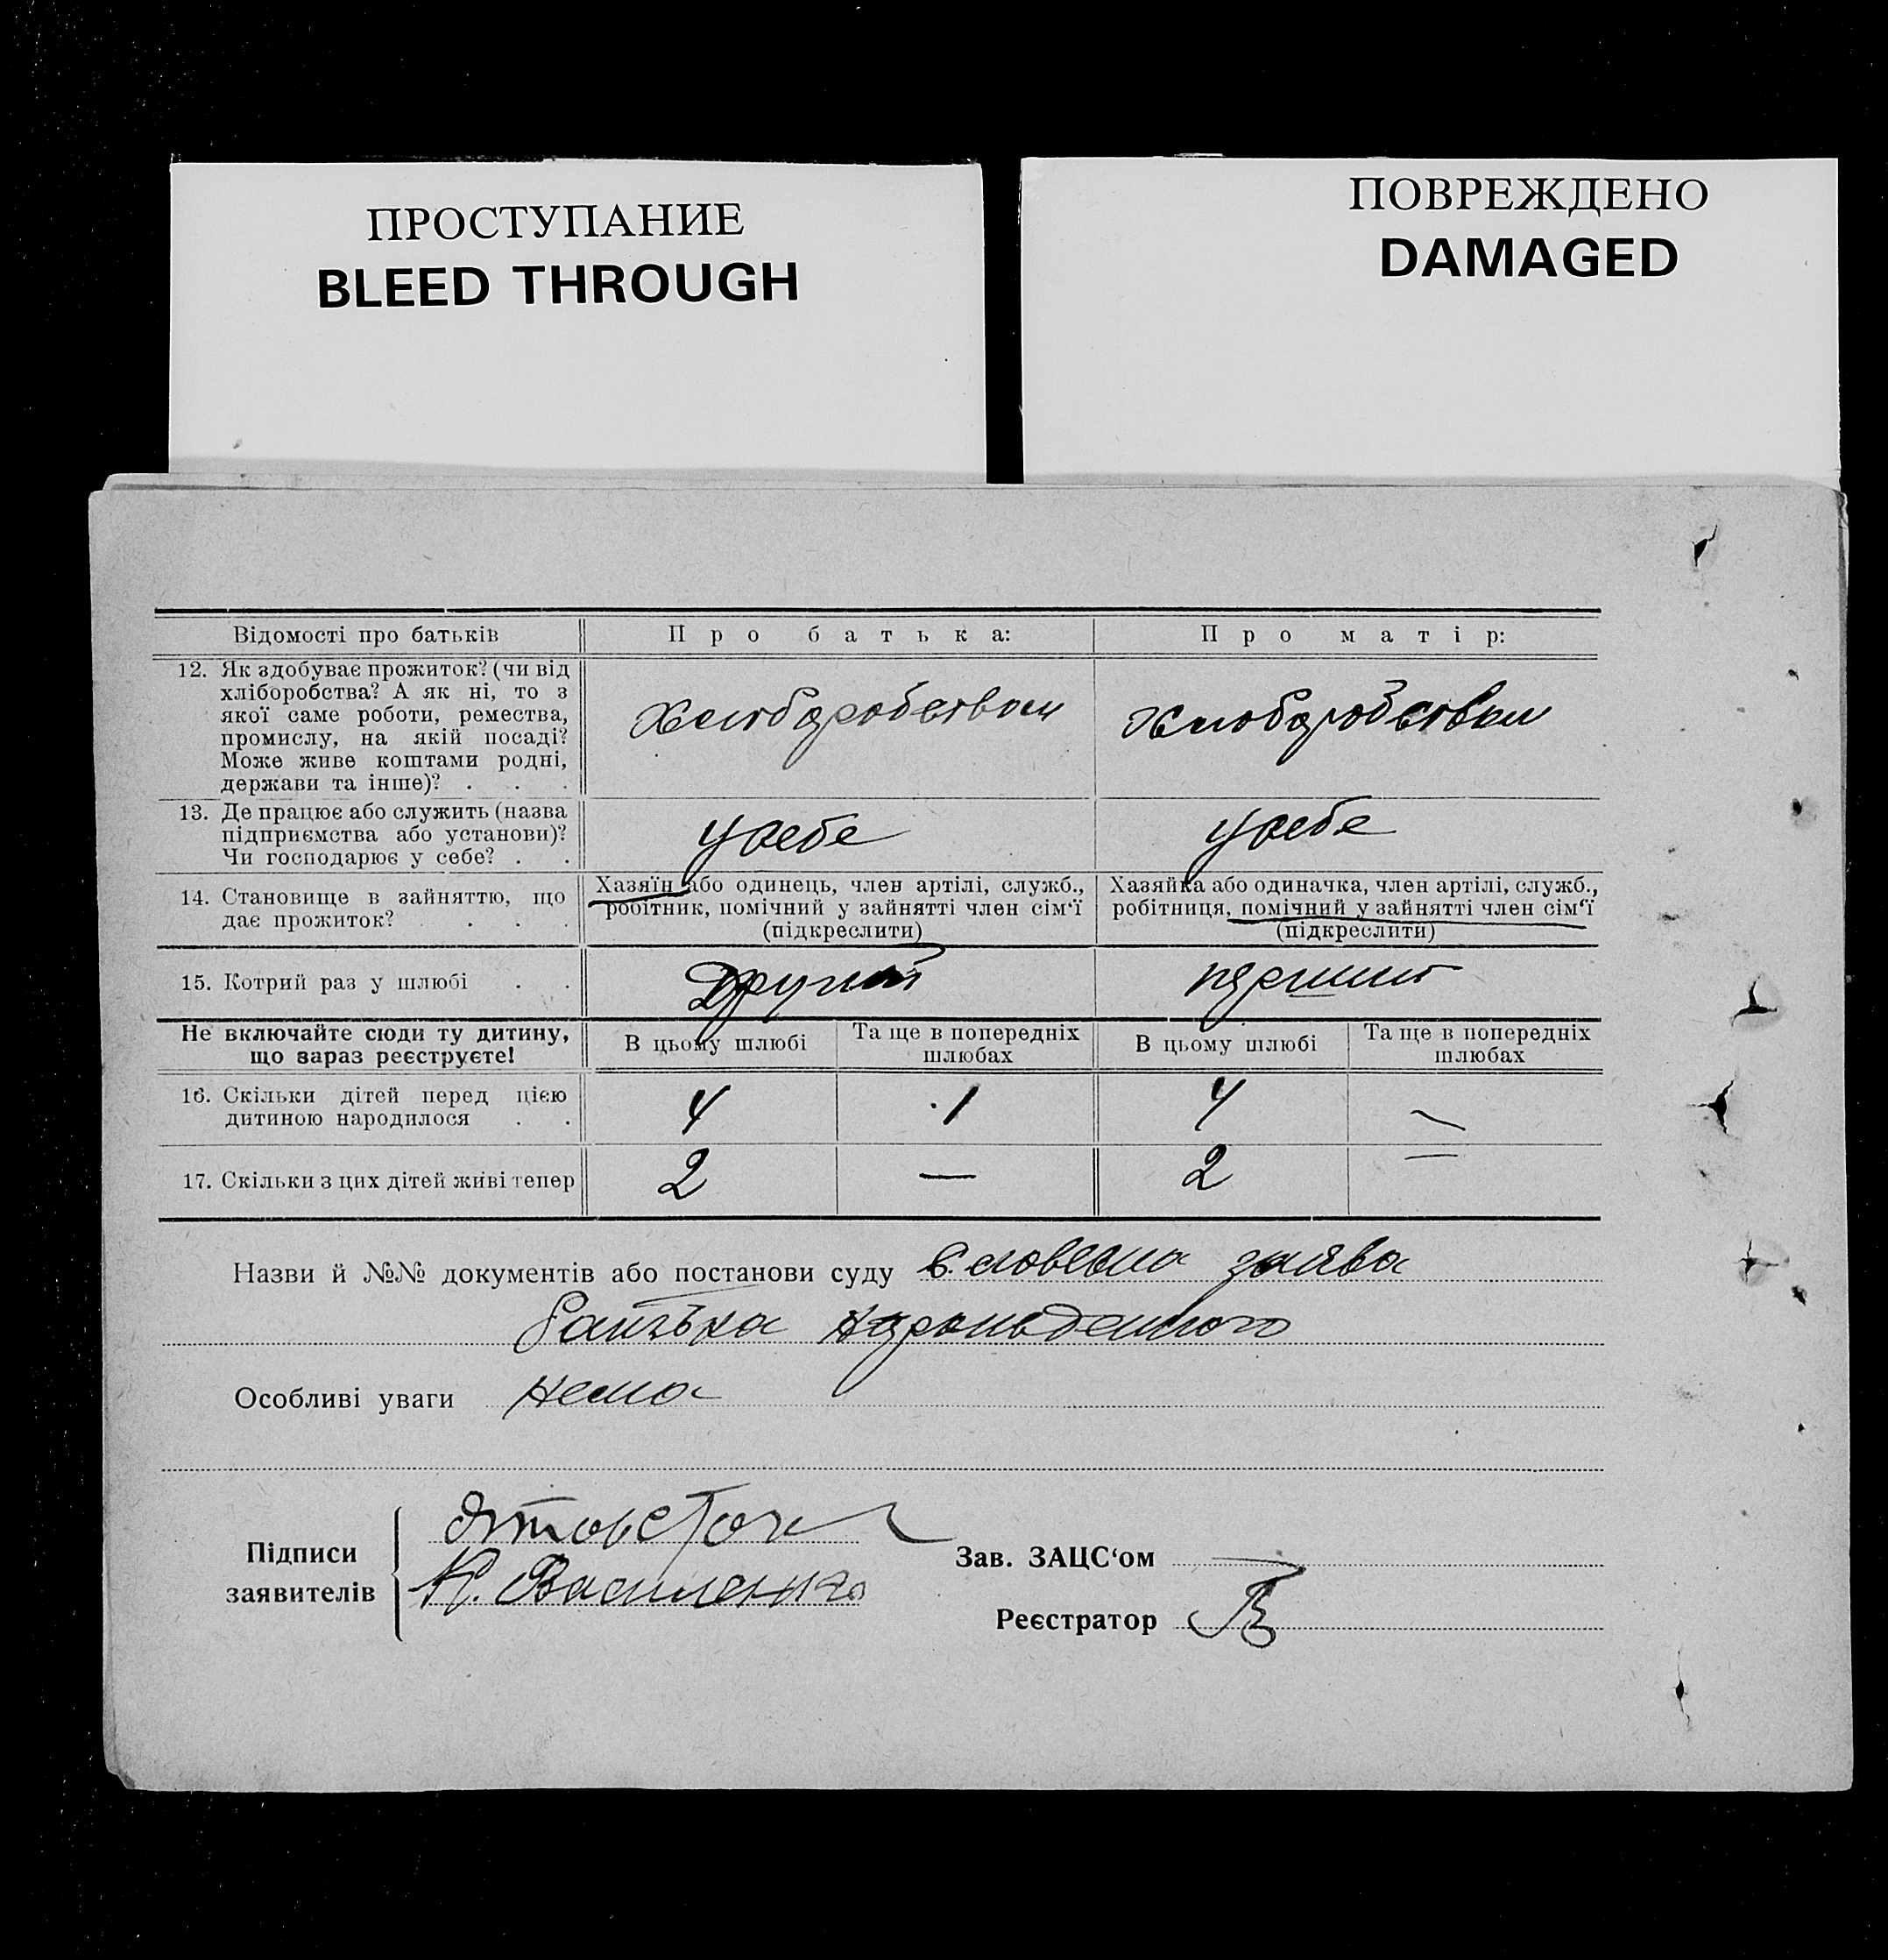 ПРОСТУПАНИЕ
BLEED THROUGH
ПОВРЕЖДЕНО
DAMAGED
Відомості про батьків
Про батька:
Про матір:
12. Як здобуває прожиток? (чи від
хліборобства? А як ні, то з
якої саме роботи, ремества,
промислу, на якій посаді?
Може живе коштами родні,
держави та інше)? . . .
Хлібороб​ством
Хлібороб​ством
13. Де працює або служить (назва
підприємства або установи)?
Чи господарює у себе? . .
У себе
У себе
14. Становище в зайняттю, що
дає прожиток? . . .
Хазяїн або одинець, член артілі, служб.,
робітник, помічний у зайнятті член сім'ї
(підкреслити)
Хазяйка або одиначка, член артілі, служб.,
робітниця, помічний у зайнятті член сім'ї
(підкреслити)
15. Котрий раз у шлюбі . .
Другий
перший
Не включайте сюди ту дитину,
що зараз реєструєте!
В цьому шлюбі
Та ще в попередніх
шлюбах
В цьому шлюбі
Та ще в попередніх
шлюбах
16. Скільки дітей перед цією
дитиною народилося . .
4
1
4
—
17. Скільки з цих дітей живі тепер
2
—
2
—
Назви й №№ документів або постанови суду словесна заява
батька народженного
Особливі уваги нема
Підписи
заявителів
К. Василенко
Зав. ЗАЦС'ом
Реєстратор